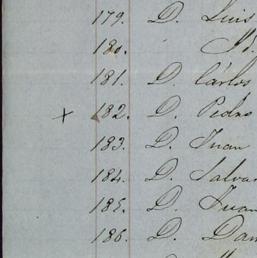 179. D. Luis
180. Id.
181. D. Cárlos
x 182. D. Pedro
183. D. Juan
184. D. Salva
185. D. Juan
186. D. Dam